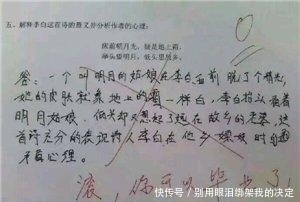 五、解释李白这首诗的意义并分析作者的心理：
床前明月光，疑是地上霜，
举头望明月，低头思故乡。
答：一个叫明月的姑娘在李白面前脱了精光，
她的皮肤就象地上的霜一样白，李白抬头看着
明月姑娘，低头却又想起了远在故乡的老婆，这
首诗充分的表现诗人李白在他乡嫖娼时的
矛盾心理。
滚，你可以
快传号 / 别用眼泪绑架我的决定